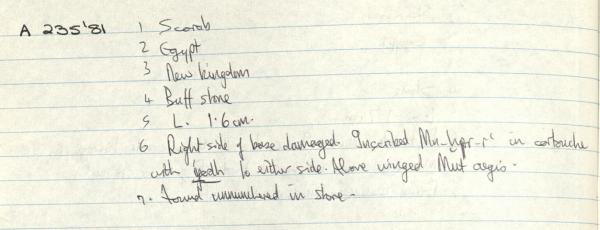 A 235'81 1 Scarab
2 Egypt
3 New kingdom
4 Buff stone
5 L. 1.6cm.
6 Right side of base damaged. Inscribed Mn-ḫpr-rꜥ in cartouche
with to either side. Above winged Mut aegis.
7. Found unnumbered in store.